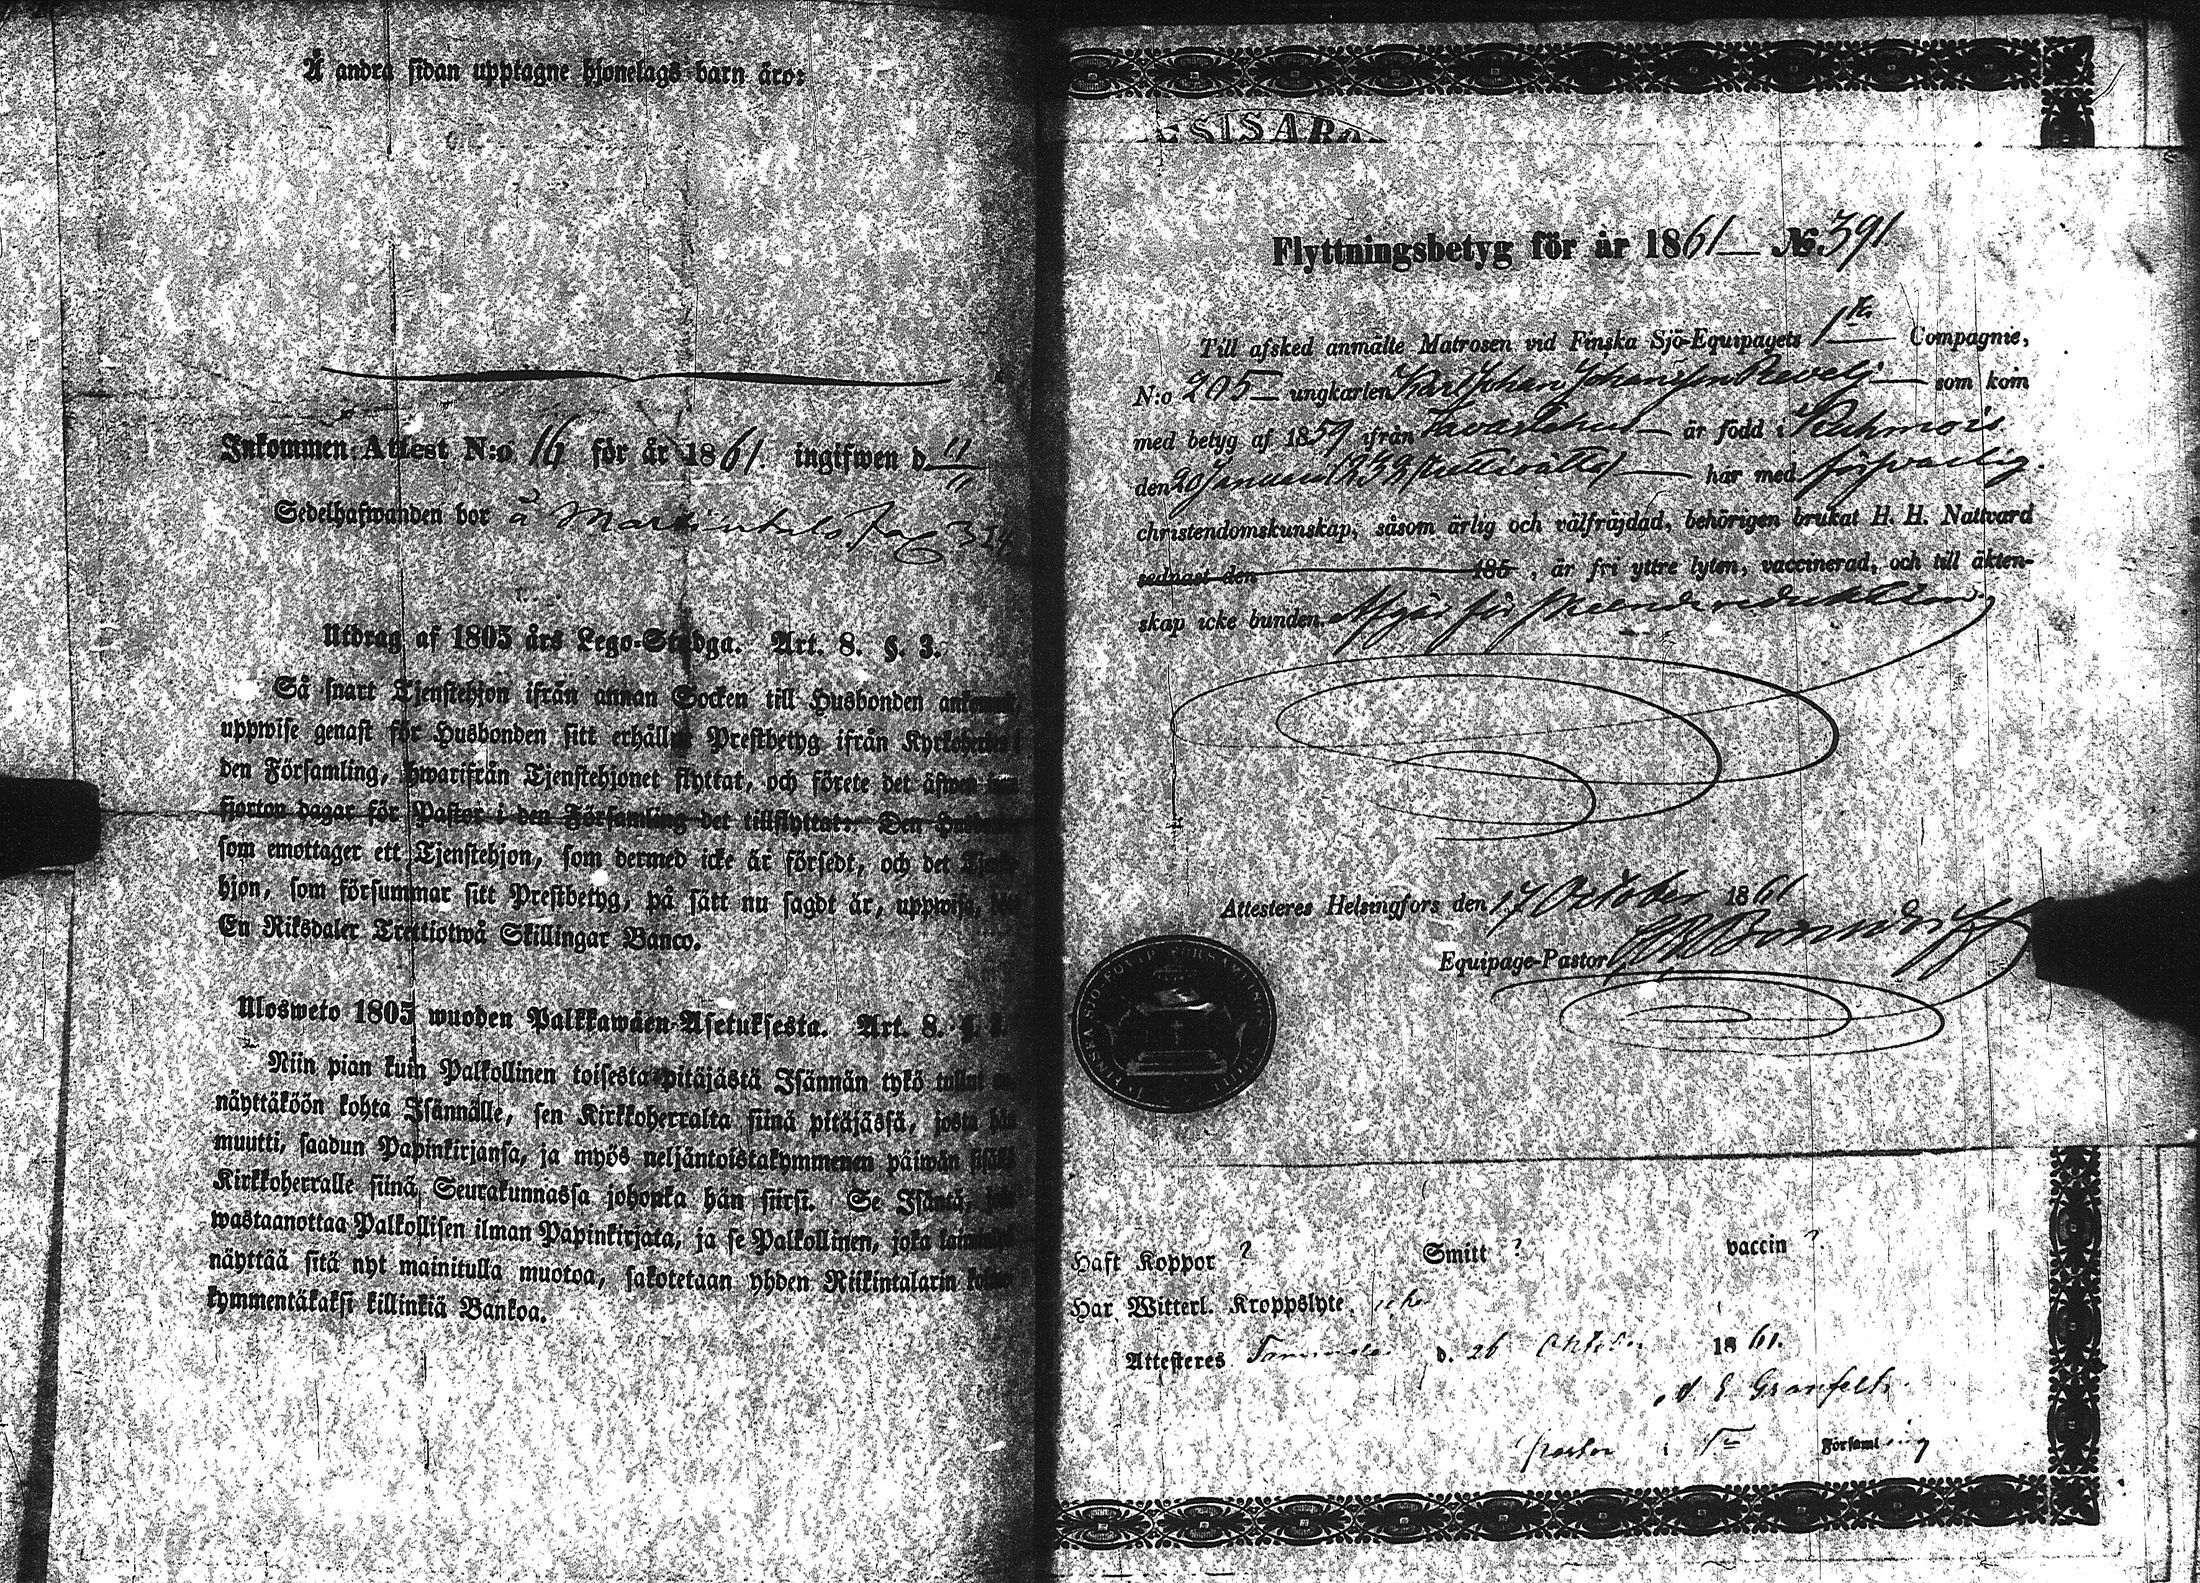 Å andra sidan upptagne hjonelags barn äro:
Inkommen Attest N:o 16 för år 1861. ingifwen d. 11/11
Sedelhafwanden bor å
Utdrag af 1805 års Lego-Stadga. Art. 8. §. 3.
Så snart Tjenstehjon ifrån annan Socken till Husbonden
uppwise genast för Husbonden sitt erhållna Prestbetyg ifrån
den Församling, hwarifrån Tjenstehjonet flyttat, och förete det äfwen
fjorton dagar för Pastor i den Församling det tillflyttat. Den
som emottager ett Tjenstehjon, som dermed icke är försedt, och det
hjon, som försummar sitt Prestbetyg, på sätt nu sagdt är, uppwisa,
En Riksdaler Trettiotwå Skillingar Banco.
Ulosweto 1805 wuoden Palkkawäen-Asetuksesta. Art. 8. §.
Niin pian kuin Palkollinen toisesta pitäjästä Isännän tykö tullut
näyttäköön kohta Isännälle, sen Kirkkoherralta siinä pitäjässä, josta hän
muutti, saadun Papinkirjansa, ja myös neljäntoistakymmenen päiwän sisällä
Kirkkoherralle siinä Seurakunnassa johonka hän siirsi. Se Isäntä,
wastaanottaa Palkollisen ilman Papinkirjata, ja se Palkollinen, joka
näyttää sitä nyt mainitulla muotoa, sakotetaan yhden Riikintalarin
kymmentäkaksi killinkiä Bankoa.
Flyttningsbetyg för år 1861 № 391
Till afsked anmälte Matrosen vid Finska Sjö-Equipagets 1sta Compagnie,
N:o 205 ungkarlen Karl Johan Johansson Revelj som kom
med betyg af 1859 ifrån Tavastehus är född i Kuhmois
den 20 Januari 1832 har med försvarlig
christendomskunskap, såsom ärlig och välfräjdad, behörigen brukat H. H. Nattvard
sednast den 185 , är fri yttre lyten, vaccinerad, och till äkten-
skap icke bunden. Afgår för
Attesteres Helsingfors den 17 October 1861
Equipage-Pastor
Haft Koppor ? Smitt ? vaccin ?.
Har Witterl. Kroppslyte
Attesteres d. 26 Oktober 1861.
Granfelt
pastor i Församling